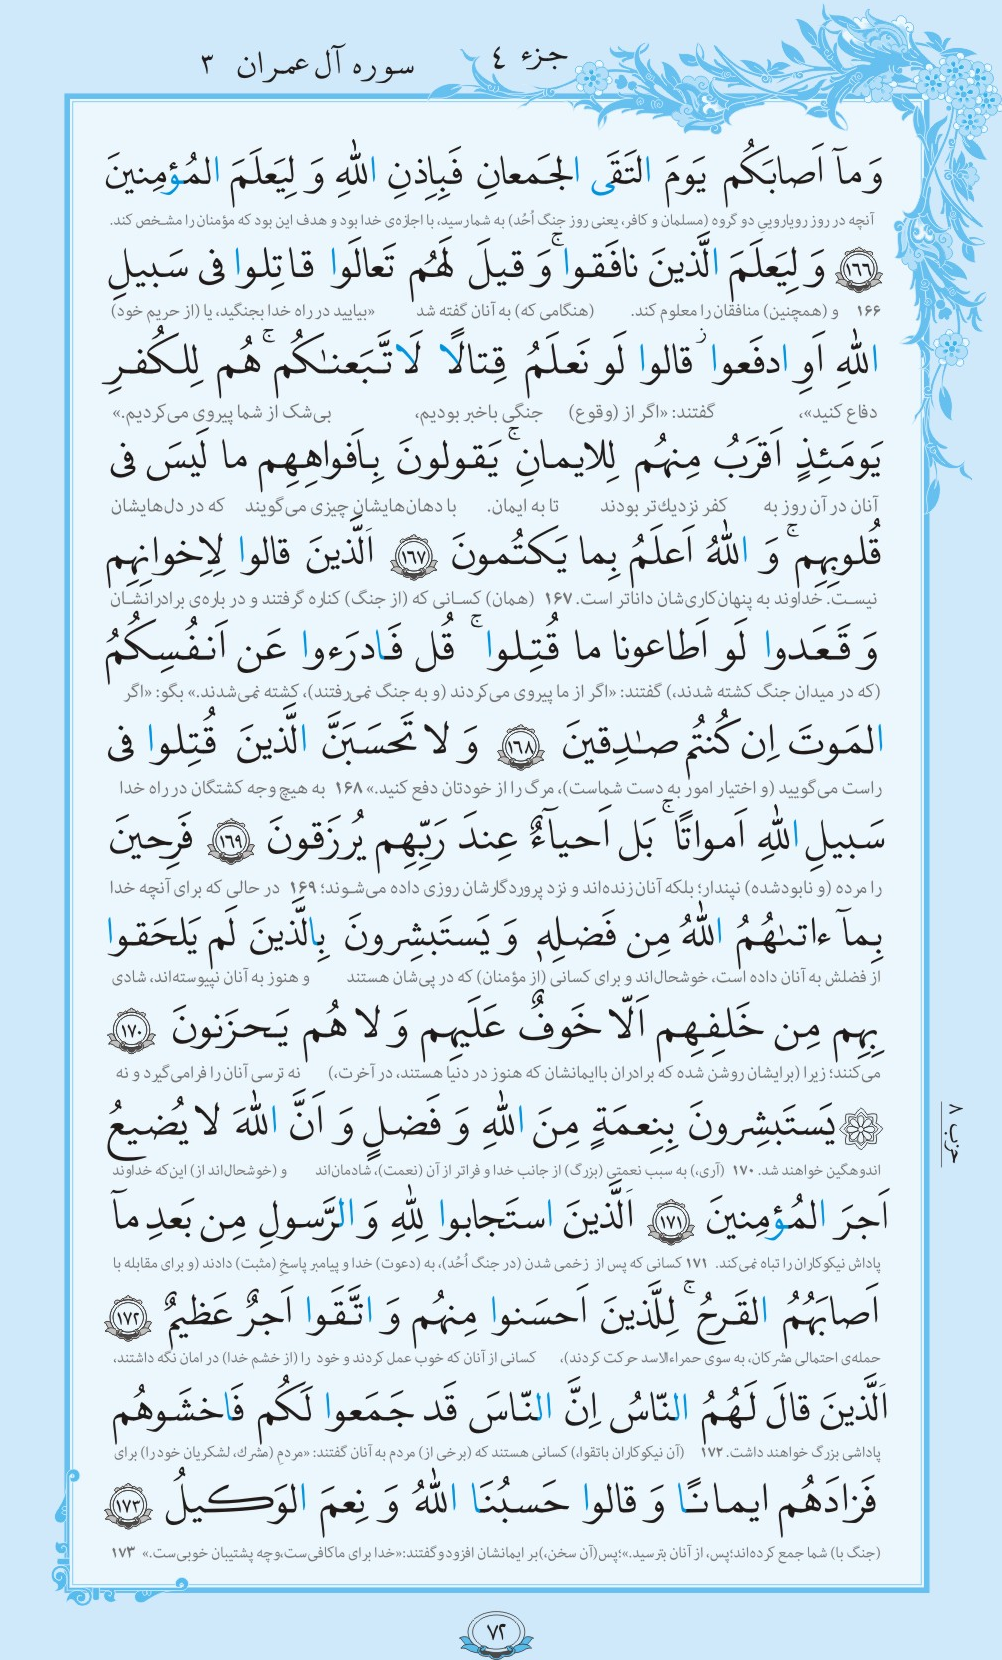 جزء ٤
سوره آل عمران ٣
وَ مآ اَصابَكُم يَومَ التَقَى الجَمعانِ فَبِاِذنِ اللّٰهِ وَ لِيَعلَمَ المُؤمِنينَ
آنچه در روز رویاروییِ دو گروه (مسلمان و کافر، یعنی روز جنگ اُحُد) به شما رسید، با اجازه‌ی خدا بود و هدف این بود که مؤمنان را مشخص کند.
﴿١٦٦﴾ وَ لِيَعلَمَ الَّذينَ نافَقوا ۚ وَ قيلَ لَهُم تَعالَوا قاتِلوا فى سَبيلِ
۱۶۶ و (همچنین) منافقان را معلوم کند. (هنگامی که) به آنان گفته شد «بیایید در راه خدا بجنگید، یا (از حریم خود)
اللّٰهِ اَوِ ادفَعوا ۖ قالوا لَو نَعلَمُ قِتالًا لَاتَّبَعنٰكُم ۚ هُم لِلكُفرِ
دفاع کنید»، گفتند: «اگر از (وقوع) جنگی باخبر بودیم، بی‌شک از شما پیروی می‌کردیم.»
يَومَئِذٍ اَقرَبُ مِنهُم لِلايمانِ ۚ يَقولونَ بِاَفواهِهِم ما لَيسَ فى
آنان در آن روز به کفر نزدیك‌تر بودند تا به ایمان. با دهان‌هایشان چیزی می‌گویند که در دل‌هایشان
قُلوبِهِم ۚ وَ اللّٰهُ اَعلَمُ بِما يَكتُمونَ ﴿١٦٧﴾ اَلَّذينَ قالوا لِاِخوانِهِم
نیست. خداوند به پنهان‌کاری‌شان داناتر است. ۱۶۷ (همان) کسانی که (از جنگ) کناره گرفتند و در باره‌ی برادرانشان
وَ قَعَدوا لَو اَطاعونا ما قُتِلوا ۚ قُل فَادرَءوا عَن اَنفُسِكُمُ
(که در میدان جنگ کشته شدند،) گفتند: «اگر از ما پیروی می‌کردند (و به جنگ نمی‌رفتند)، کشته نمی‌شدند.» بگو: «اگر
المَوتَ اِن كُنتُم صٰدِقينَ ﴿١٦٨﴾ وَ لا تَحسَبَنَّ الَّذينَ قُتِلوا فى
راست می‌گویید (و اختیار امور به دست شماست)، مرگ را از خودتان دفع کنید.» ۱۶۸ به هیچ وجه کشتگان در راه خدا
سَبيلِ اللّٰهِ اَمواتًا ۚ بَل اَحيآءٌ عِندَ رَبِّهِم يُرزَقونَ ﴿١٦٩﴾ فَرِحينَ
را مرده (و نابودشده) نپندار؛ بلکه آنان زنده‌اند و نزد پروردگارشان روزی داده می‌شوند؛ ۱۶۹ در حالی که برای آنچه خدا
بِمآ ءاتىٰهُمُ اللّٰهُ مِن فَضلِهٖ وَ يَستَبشِرونَ بِالَّذينَ لَم يَلحَقوا
از فضلش به آنان داده است، خوشحال‌اند و برای کسانی (از مؤمنان) که در پی‌شان هستند و هنوز به آنان نپیوسته‌اند، شادی
بِهِم مِن خَلفِهِم اَلّا خَوفٌ عَلَيهِم وَ لا هُم يَحزَنونَ ﴿١٧٠﴾
می‌کنند؛ زیرا (برایشان روشن شده که برادران باایمانشان که هنوز در دنیا هستند، در آخرت،) نه ترسی آنان را فرامی‌گیرد و نه
۞ يَستَبشِرونَ بِنِعمَةٍ مِنَ اللّٰهِ وَ فَضلٍ وَ اَنَّ اللّٰهَ لا يُضيعُ
اندوهگین خواهند شد. ۱۷۰ (آری،) به سبب نعمتی (بزرگ) از جانب خدا و فراتر از آن (نعمت)، شادمان‌اند و (خوشحال‌اند از) این‌که خداوند
حزب ٨
اَجرَ المُؤمِنينَ ﴿١٧١﴾ اَلَّذينَ استَجابوا لِلّٰهِ وَ الرَّسولِ مِن بَعدِ مآ
پاداش نیکوکاران را تباه نمی‌کند. ۱۷۱ کسانی که پس از زخمی شدن (در جنگ اُحُد)، به (دعوت) خدا و پیامبر پاسخِ (مثبت) دادند (و برای مقابله با
اَصابَهُمُ القَرحُ ۚ لِلَّذينَ اَحسَنوا مِنهُم وَ اتَّقَوا اَجرٌ عَظيمٌ ﴿١٧٢﴾
حمله‌ی احتمالی مشرکان، به سوی حمراءالاسد حرکت کردند)، کسانی از آنان که خوب عمل کردند و خود را (از خشم خدا) در امان نگه داشتند،
اَلَّذينَ قالَ لَهُمُ النّاسُ اِنَّ النّاسَ قَد جَمَعوا لَكُم فَاخشَوهُم
پاداشی بزرگ خواهند داشت. ۱۷۲ (آن نیکوکاران باتقوا،) کسانی هستند که (برخی از) مردم به آنان گفتند: «مردمِ (مشرك، لشکریان خود را) برای
فَزادَهُم ايمانًا وَ قالوا حَسبُنَا اللّٰهُ وَ نِعمَ الوَكيلُ ﴿١٧٣﴾
(جنگ با) شما جمع کرده‌اند؛ پس، از آنان بترسید.»؛ پس (آن سخن،) بر ایمانشان افزود و گفتند: «خدا برای ما کافی‌ست، و چه پشتیبان خوبی‌ست.» ۱۷۳
٧٢